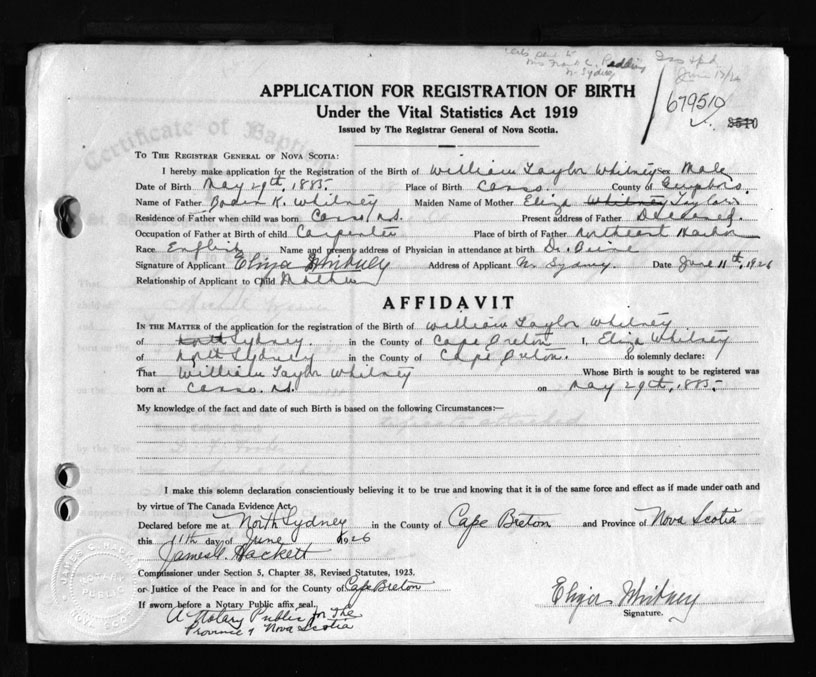 Mrs Frank C.
N. Sydney
APPLICATION FOR REGISTRATION OF BIRTH
679510
Under the Vital Statistics Act 1919
3510
Issued by The Registrar General of Nova Scotia.
TO THE REGISTRAR GENERAL OF NOVA SCOTIA:
I hereby make application for the Registration of the Birth of William Taylor Whitney Sex Male
Date of Birth May 29th, 1885. Place of Birth Canso. County of Guysboro.
Name of Father K. Whitney Maiden Name of Mother Eliza Whitney Taylor
Residence of Father when child was born Canso N.S. Present address of Father Deceased.
Occupation of Father at Birth of child Carpenter Place of birth of Father Northeast Harbor
Race English Name and present address of Physician in attendance at birth Dr.
Signature of Applicant Eliza Whitney Address of Applicant N. Sydney. Date June 11th, 1926
Relationship of Applicant to Child Mother
AFFIDAVIT
IN THE MATTER of the application for the registration of the Birth of William Taylor Whitney
of North Sydney. in the County of Cape Breton. I, Eliza Whitney
of North Sydney in the County of Cape Breton. do solemnly declare:
That William Taylor Whitney Whose Birth is sought to be registered was
born at Canso. N.S. on May 29th, 1885.
My knowledge of the fact and date of such Birth is based on the following Circumstances:—
attached
I make this solemn declaration conscientiously believing it to be true and knowing that it is of the same force and effect as if made under oath and
by virtue of The Canada Evidence Act.
Declared before me at North Sydney in the County of Cape Breton and Province of Nova Scotia
this 11th day of June 1926
James C. Hackett
Commissioner under Section 5, Chapter 38, Revised Statutes, 1923.
or Justice of the Peace in and for the County of Cape Breton
If sworn before a Notary Public affix seal.
Eliza Whitney
Signature.
A Notary Public for the
Province of Nova Scotia
Certificate of Baptism